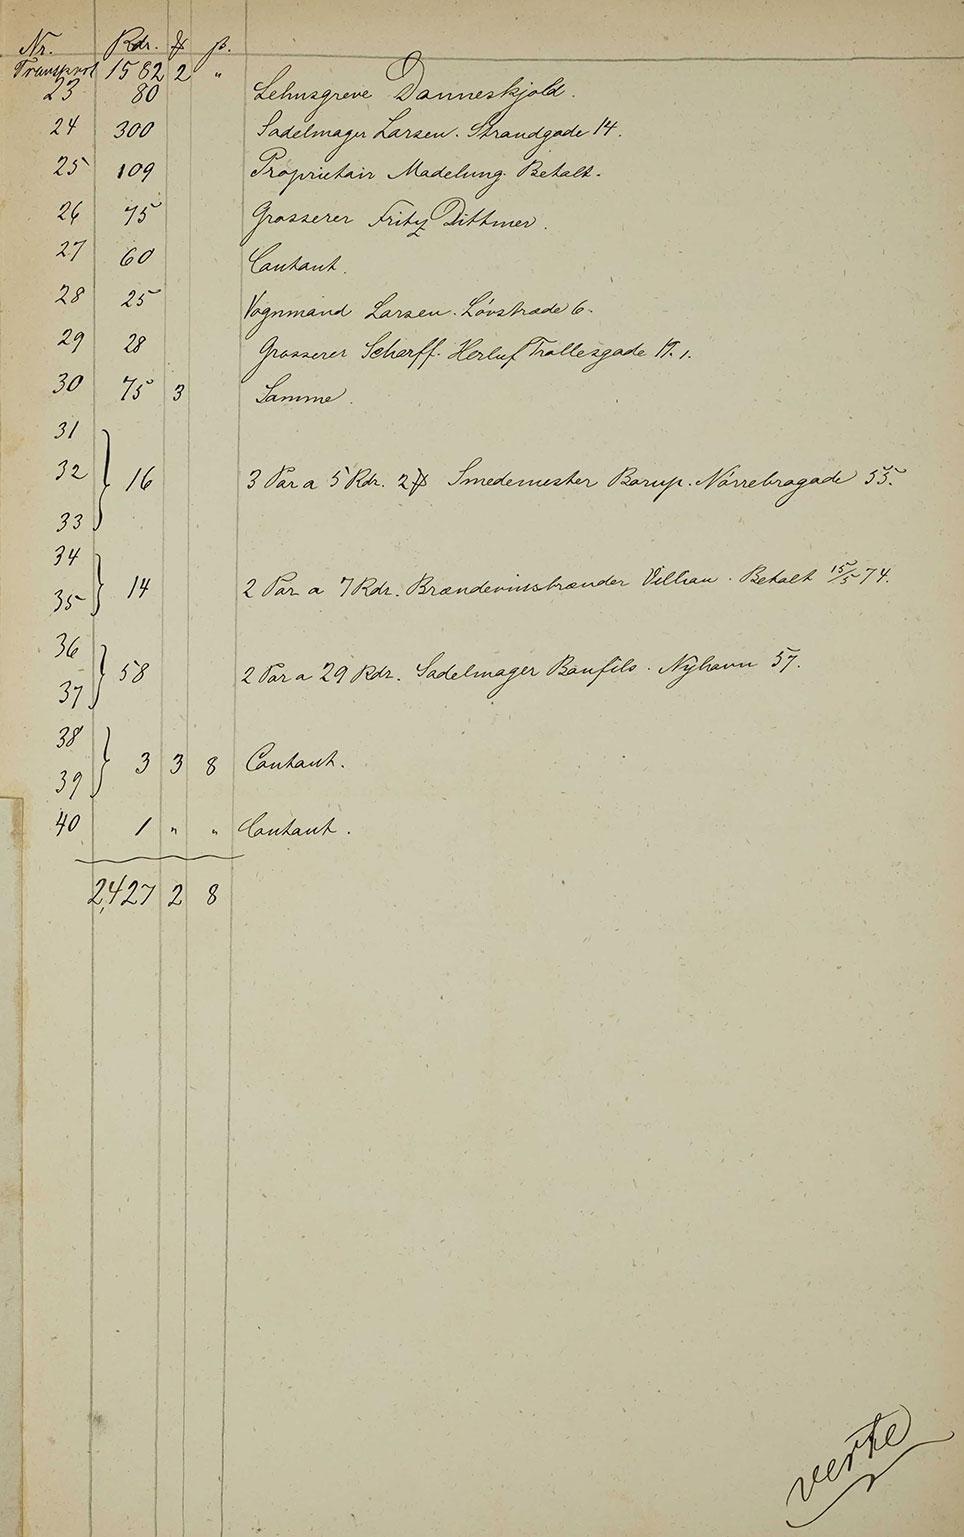 Nr. Rdr. ₰ ß.
Transport 1582 2 "
23 80 Lehnsgreve Danneskjold.
24 300 Sadelmager Larsen. Strandgade 14.
25 109 Proprietair Madelung. Betalt.
26 75 Grosserer Fritz Dittmer.
27 60 Contant.
28 25 Vognmand Larsen. Lóvstræde 6.
29 28 Grosserer Scharff. Herluf Trollesgade 1.
30 75 3 Samme.
31
32 16 3 Par a 5 Rdr. 2 ₰ Smedemester Borup. Nórrebrogade 55.
33
34
14 2 Par a 7 Rdr. Brændevinsbrænder Betalt 15/5 74.
35
36
58 2 Par a 29 Rdr. Sadelmager Bonfils. Nyhavn 57.
37
38
3 3 8 Contant.
39
40 1 " " Contant.
2,427 2 8
verte